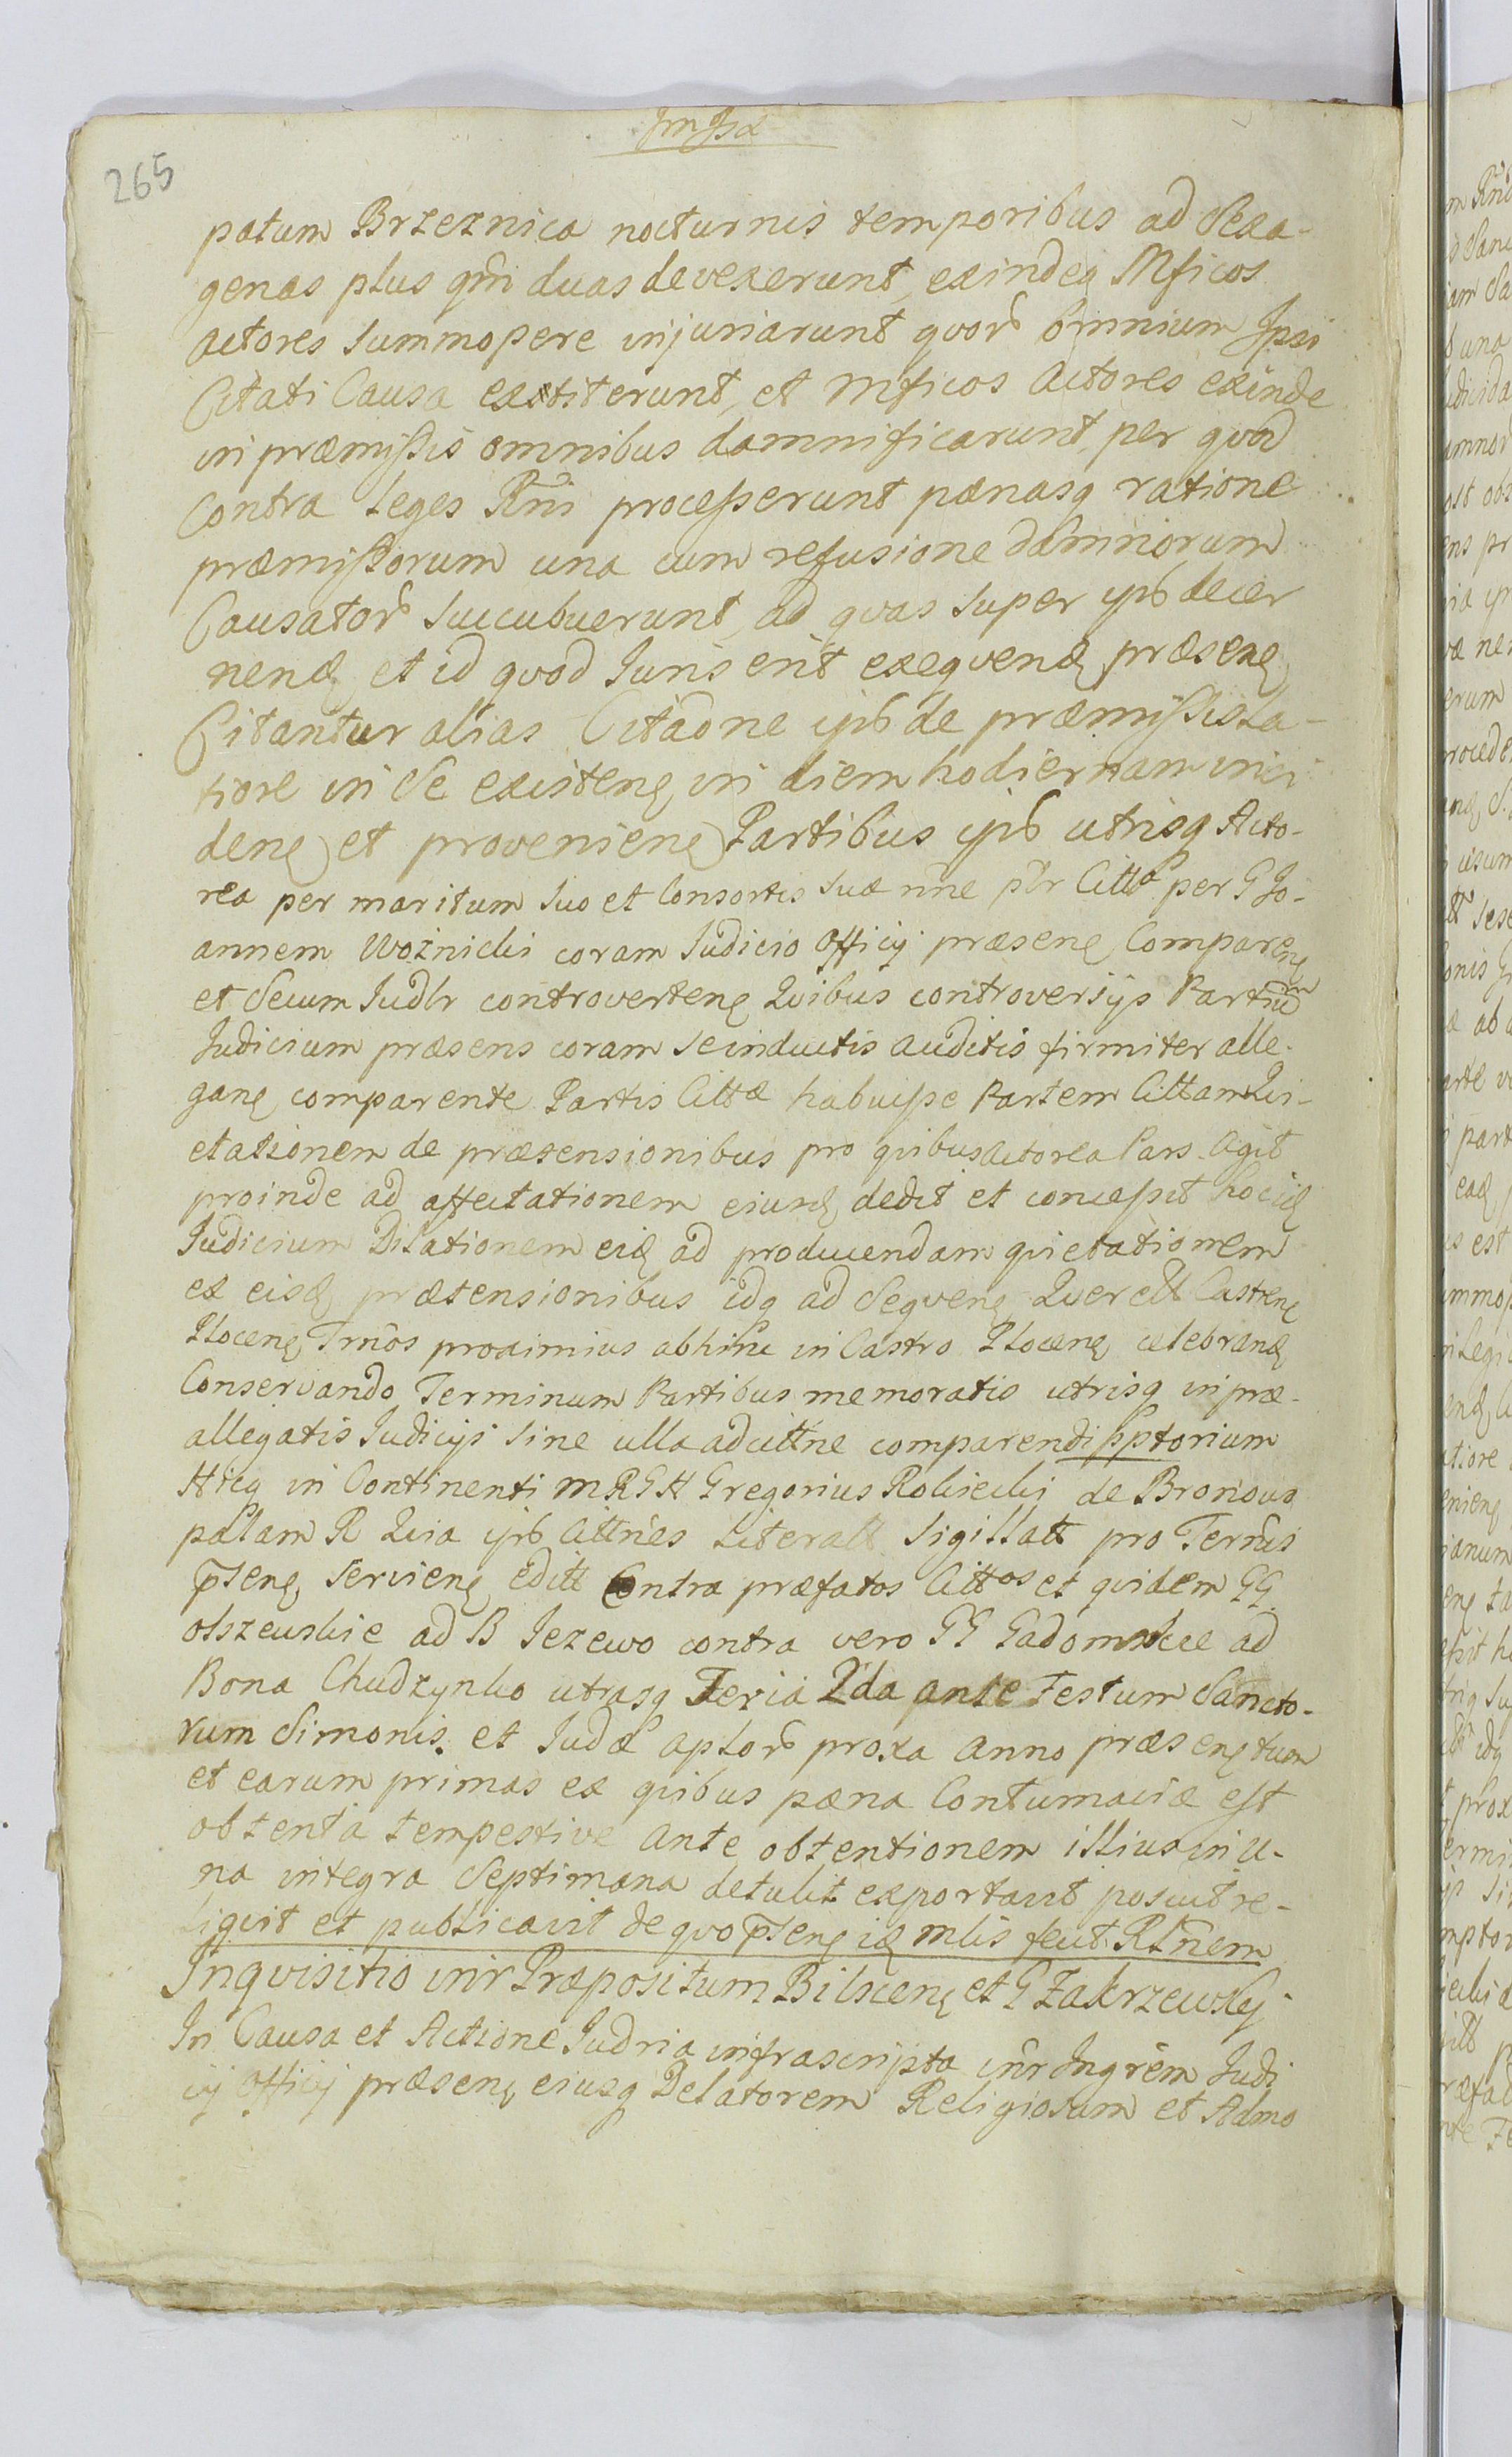 265
patum Brzeznica nocturnis temporibus ad Sexa-
genas plus qm̃ duas devexerunt, exindeq Mficos
actores summopere injuriarunt quor̃ omnium Ipsi
Citati Causa exstiterunt, et Mficos Actores exinde
in præmissis omnibus damnificarunt, per quod
Contra Leges Rñi processerunt pænasq ratione
præmissorum una cum refusione damnorum
Causator̃ succubuerunt, ad quas super ipsos decer
nend et id quod Juris erit exequend præsens
Citantur alias Citaõne ipsos de præmissis la-
tiore in se existens in diem hodiernam inci
dens et proveniens Partibus ipsis utrisq Acto-
rea per maritum suo et Consortis suæ nñe pr̃ Cittã per G Jo-
annem Woźnicki coram Judicio Officij præsens Comparens
et Secum Judlr controvertens Quibus controversijs Partium
Judicium præsens coram se inductis auditis firmiter alle-
gans comparente Partis Cittæ habuisse Partem Cittam Qui-
etationem de prætensionibus pro quibus Actorea Pars Agit
proinde ad affectationem eiusd dedit et concessit hocce
Judicium Dilationem eid ad producendam quietationem
ex eisd prætensionibus idq ad Sequens Querell Castrens
Plocens Trm̃os proximius abhinc in Castro Plocens celebrand
Conservando Terminum Partibus memoratis utrisq in præ-
allegatis Judicijs sine ulla adcittne comparendi pptorium
Hicq in Continenti MRGH Gregorius Rokicki de Bronowo
palam R Quia ipse Cittñes Literall Sigillatt pro Terñis
p̃sens serviens editt Contra præfatos Cittos et quidem GG
Olszewskie ad B Jezewo contra vero GG Gadomskie ad
Bona Chudzynko utrasq Feria 2da ante Festum Sancto-
rum Simonis et Judæ Aplor̃ proxa Anno præsens tum
et earum primas ex quibus pæna Contumaciæ est
obtenta tempestive Ante obtentionem illius in u-
na integra Septimana detulit exportavit posuit re-
liquit et publicavit de quo p̃sens id mlis fecit Rlñem
Inquisitio intr Præpositum Bilscens et G Zakrzewskj
In Causa et Actione Judria infrascripta intr Ingrem Judi
cij Officij præsens eiusq Delatorem Religiosum et Admo